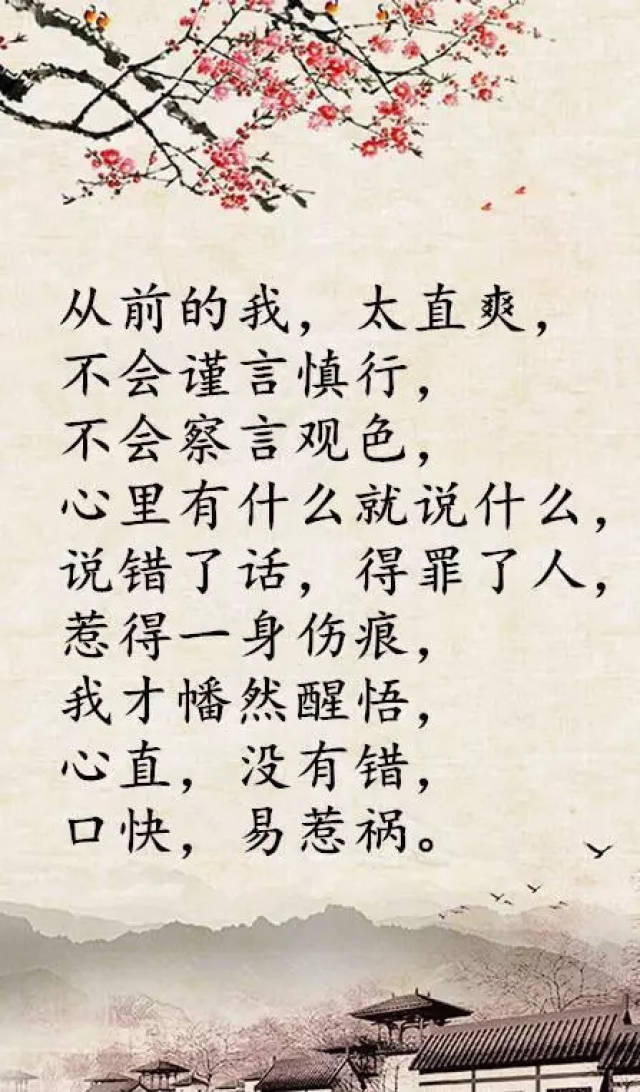 从前的我，太直爽，
不会谨言慎行，
不会察言观色，
心里有什么就说什么，
说错了话，得罪了人，
惹得一身伤痕，
我才幡然醒悟，
心直，没有错，
口快，易惹祸。